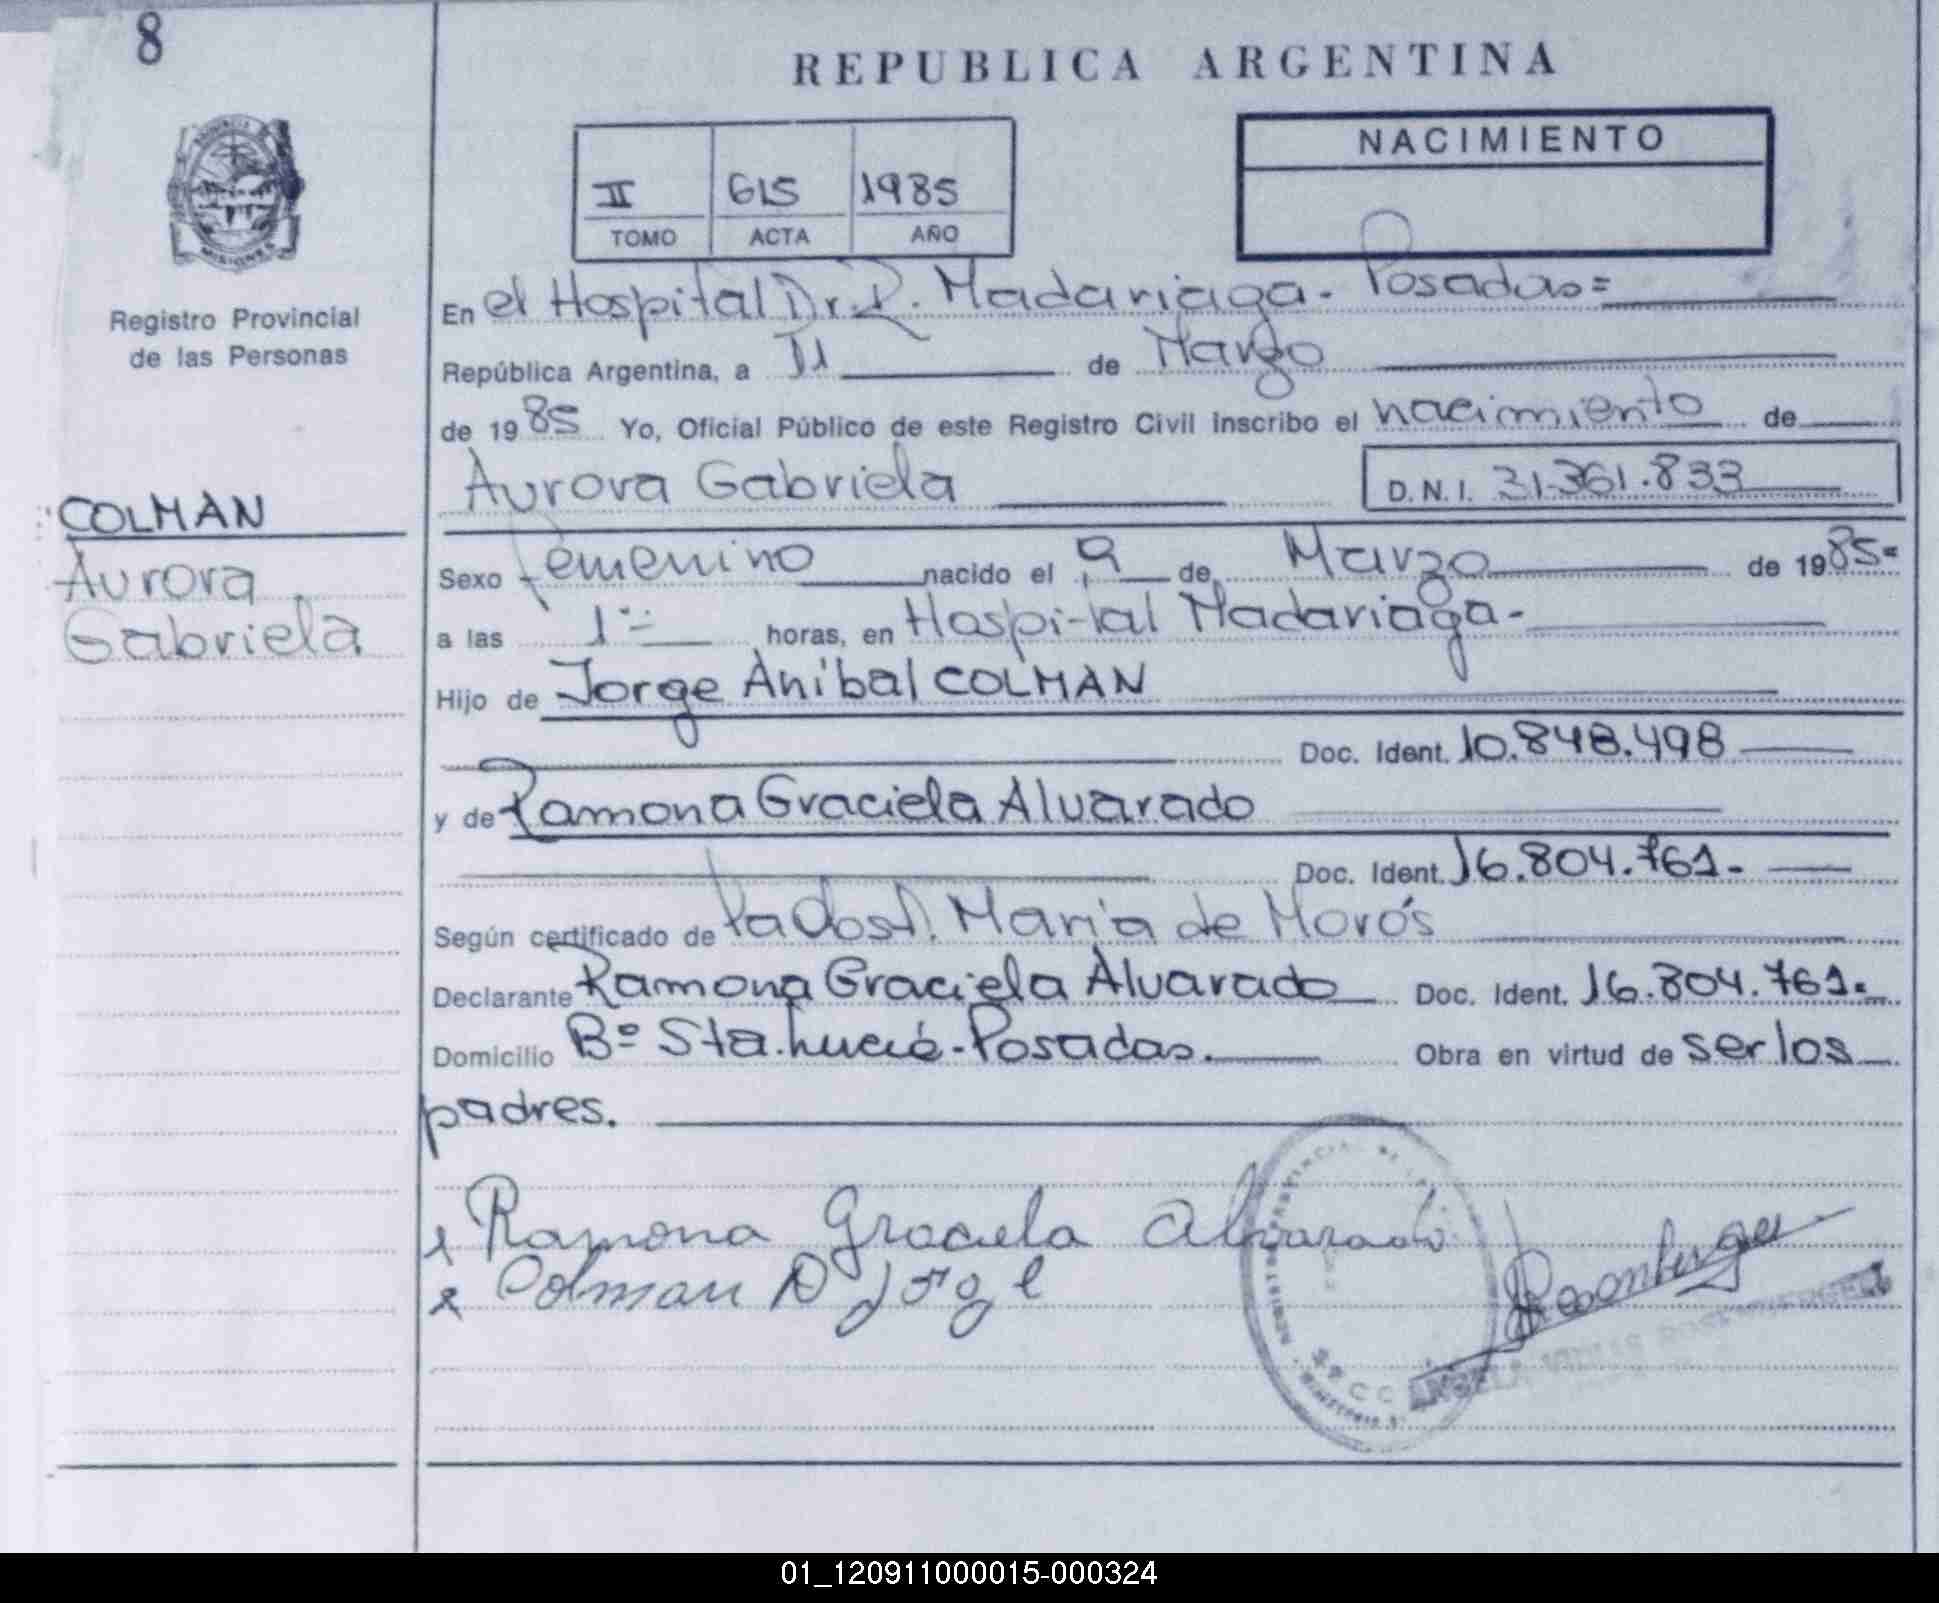 8
REPUBLICA ARGENTINA
NACIMIENTO
II 615 1985
TOMO ACTA AÑO
MISIONES
Registro Provincial
de las Personas
En el Hospital Dr. R. Madariaga - Posadas =
República Argentina, a 11 de Marzo
de 1985 Yo, Oficial Público de este Registro Civil inscribo el nacimiento de
Aurora Gabriela D.N.I. 31.361.833
COLMAN
Aurora
Gabriela
Sexo femenino nacido el 9 de Marzo de 1985=
a las 1 horas, en Hospital Madariaga -
Hijo de Jorge Aníbal COLMAN
Doc. Ident. 10.848.498
y de Ramona Graciela Alvarado
Doc. Ident. 16.804.761.-
Según certificado de la Obst. María de
Declarante Ramona Graciela Alvarado Doc. Ident. 16.804.761.
Domicilio Bº Sta. Lucía - Posadas. Obra en virtud de ser los
padres.
Ramona Graciela Alvarado
Colman A Jorge
01_120911000015-000324